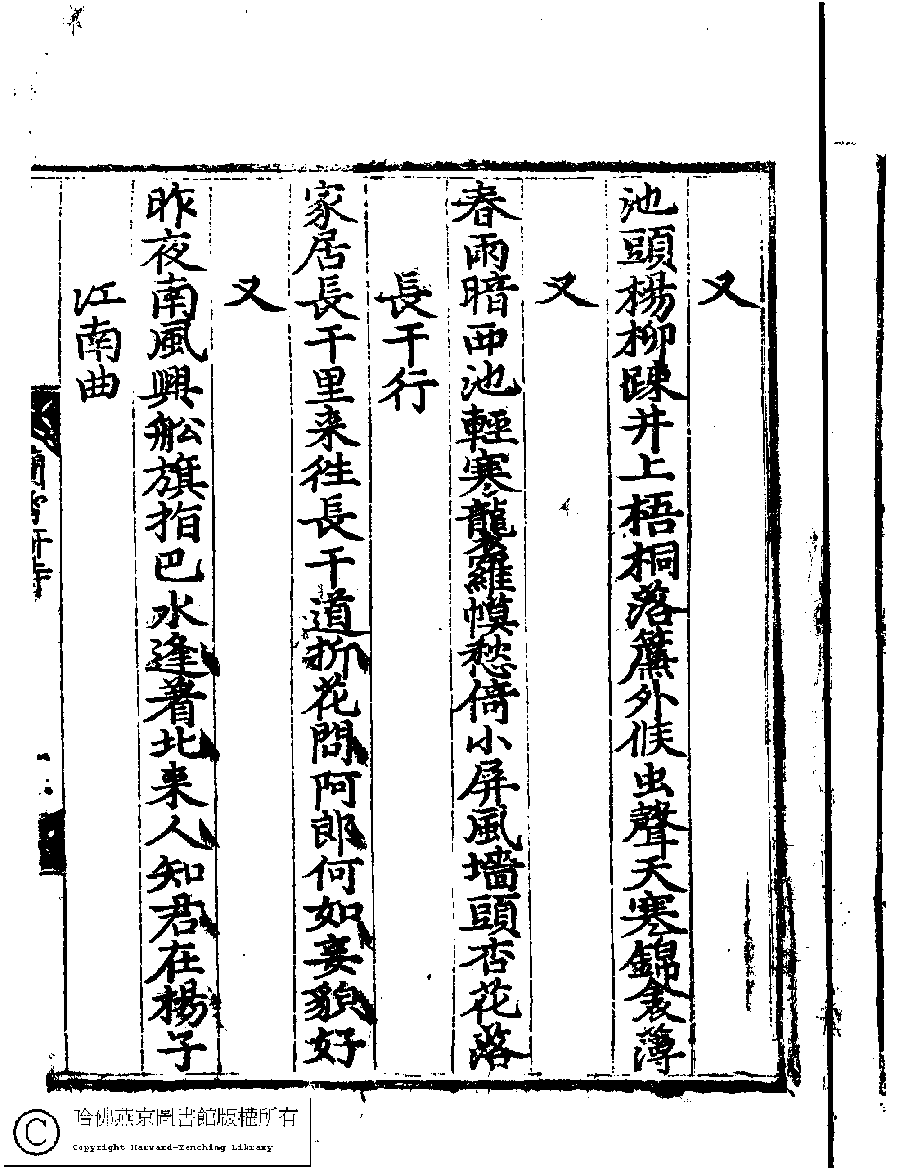 又
池頭楊柳踈井上梧桐落簾外候虫聲天寒錦衾薄
又
春雨暗西池輕寒襲羅幙愁倚小屏風墻頭杏花落
長干行
家居長干里来往長干道折花問阿郎何如妾貌好
又
昨夜南風興舩旗指巴水逢着北来人知君在楊子
江南曲
蘭雪軒詩
哈佛燕京圖書館版權所有
Copyright Harvard-Yenching Library